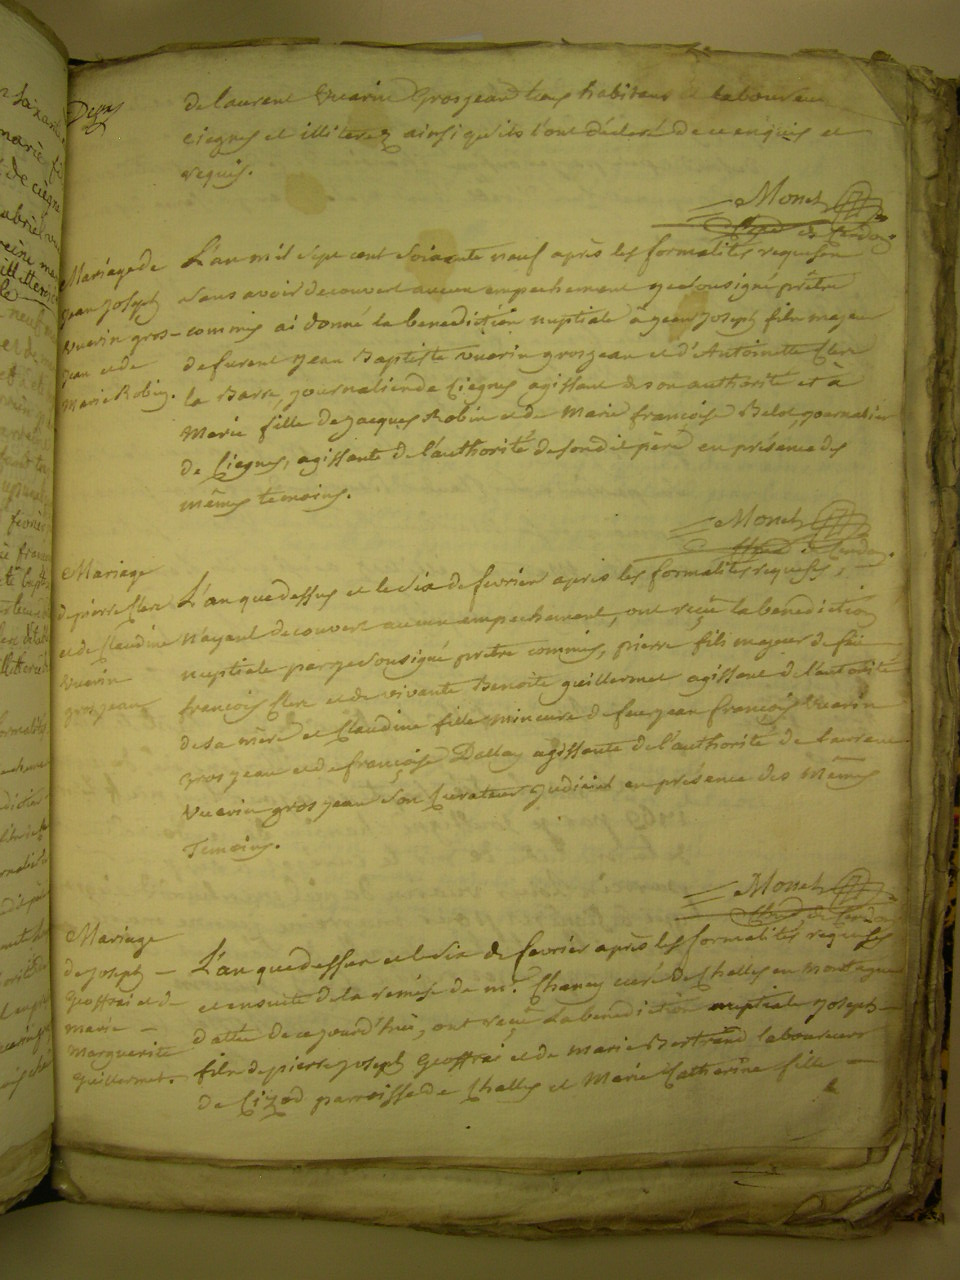 de laurent Vuarin Grosjean tous habitans et laboureurs
ciegnes et illiterez ainsi qu'ils l'ont déclaré de ce enquis et
requis.
Monet
Mariage de
jean joseph
vuarin gros-
jean et de
Marie Robin.
L'an mil sept cent soixante neuf après les formalités requises
sans avoir decouvert aucun empechement je sousigné prêtre
commis ai donné la benediction nuptiale à jean joseph fils majeur
de furent jean Baptiste vuarin grosjean et d'Antoinette Clerc
la Barre journalier de Ciegnes agissant de son authorité et à
Marie fille de Jacques Robin et de Marie françoise Belot, journalier
de Ciegnes, agissante de l'authorité de son dit pere en présence des
mêmes temoins.
Monet
Mariage
de pierre Clerc
et de Claudine
vuarin
grosjean
L'an que dessus et le six de fevrier après les formalités requises,
n'ayant decouvert aucun empechement, ont reçu la benediction
nuptiale par je sousigné prêtre commis, pierre fils majeur de feu
françois Clerc et de vivante Benoite guillermet agissant de l'autorité
de sa mère et Claudine fille mineure de feu jean françois Vuarin
grosjean et de françoise agissante de l'authorité de laurent
Vuarin grosjean son Curateur judiciel en présence des Mêmes
Temoins.
Monet
Mariage
de joseph
Geoffrai et de
marie
Marguerite
Guillermet.
L'an que dessus et le six de fevrier après les formalités requises
et ensuite de la remise de mr. Chaney curé de Challes en Montagne
dattée de ce jourd'hui, ont reçu la benediction nuptiale joseph
fils de pierre joseph Geoffrai et de marie Bertrand laboureurs
de Cizod parroisse de Challes et Marie Catherine fille